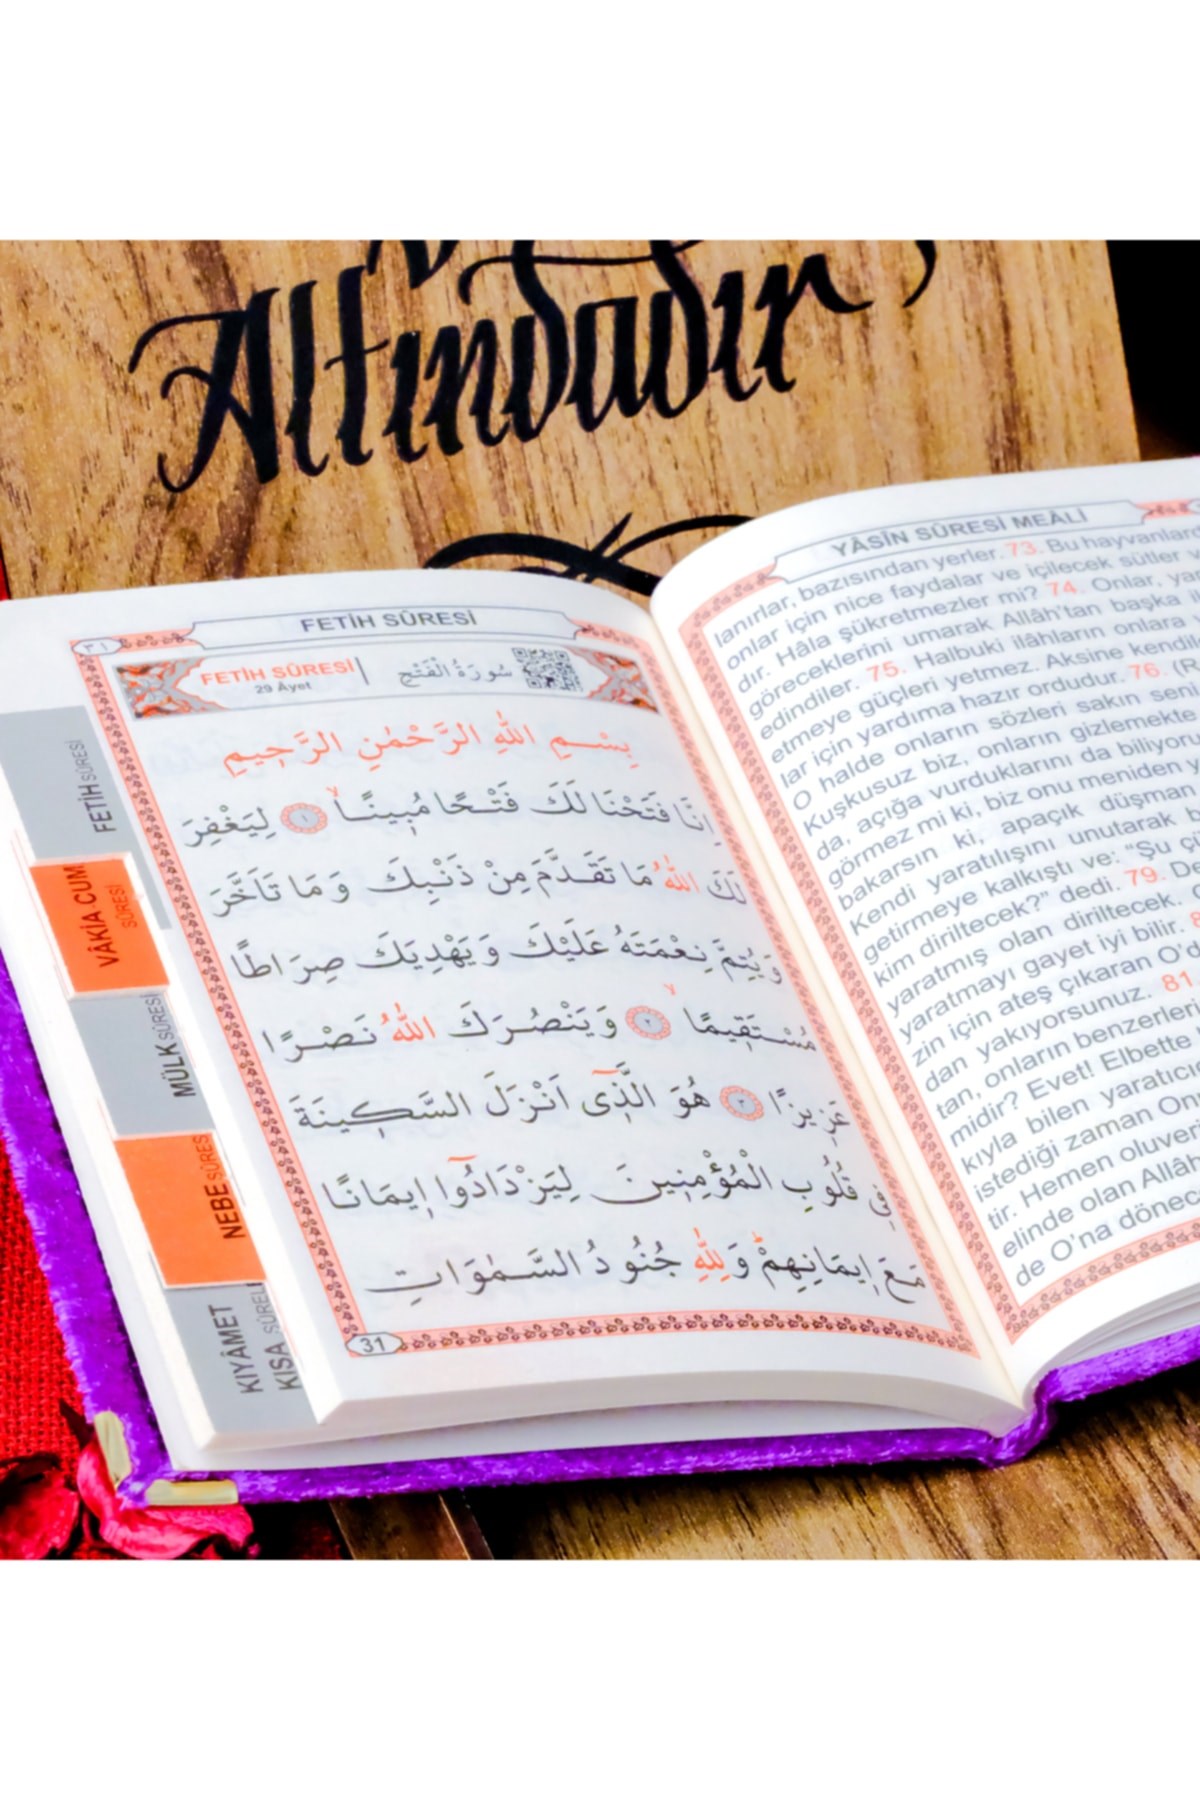 Altındadır
FETİH SÛRESİ
٣١
FETİH SÛRESİ
29 Âyet
سُورَةُ الْفَتْحِ
بِسْمِ اللهِ الرَّحْمٰنِ الرَّحٖيمِ
اِنَّا فَتَحْنَا لَكَ فَتْحًا مُبٖينًاۙ ١ لِيَغْفِرَ
لَكَ اللهُ مَا تَقَدَّمَ مِنْ ذَنْبِكَ وَمَا تَاَخَّرَ
وَيُتِمَّ نِعْمَتَهُ عَلَيْكَ وَيَهْدِيَكَ صِرَاطًا
مُسْتَقٖيمًاۙ ٢ وَيَنْصُرَكَ اللهُ نَصْرًا
عَزٖيزًا ٣ هُوَ الَّذٖٓى اَنْزَلَ السَّكٖينَةَ
فٖى قُلُوبِ الْمُؤْمِنٖينَ لِيَزْدَادُٓوا اٖيمَانًا
مَعَ اٖيمَانِهِمْؕ وَلِلّٰهِ جُنُودُ السَّمٰوَاتِ
31
FETİH SÛRESİ
VÂKİA CUM
SÛRESİ
MÜLK SÛRESİ
NEBE SÛRES
KIYÂMET
KISA SÛREL
YÂSÎN SÛRESİ MEÂLİ
lanırlar, bazısından yerler. 73. Bu hayvanlard
onlar için nice faydalar ve içilecek sütler
dır. Hâla şükretmezler mi? 74. Onlar, ya
göreceklerini umarak Allâh'tan başka
edindiler. 75. Halbuki ilâhların onlara
etmeye güçleri yetmez. Aksine kendil
lar için yardıma hazır ordudur. 76. (R
O halde onların sözleri sakın seni
Kuşkusuz biz, onların gizlemekte
da, açığa vurduklarını da biliyoru
görmez mi ki, biz onu meniden y
bakarsın ki, apaçık düşman
Kendi yaratılışını unutarak b
getirmeye kalkıştı ve: "Şu çi
kim diriltecek?" dedi. 79. De
yaratmış olan diriltecek.
yaratmayı gayet iyi bilir.
zin için ateş çıkaran O'd
dan yakıyorsunuz. 81
tan, onların benzerler
midir? Evet! Elbette
kıyla bilen yaratıcı
istediği zaman On
tir. Hemen oluveri
elinde olan Allâh
de O'na dönec